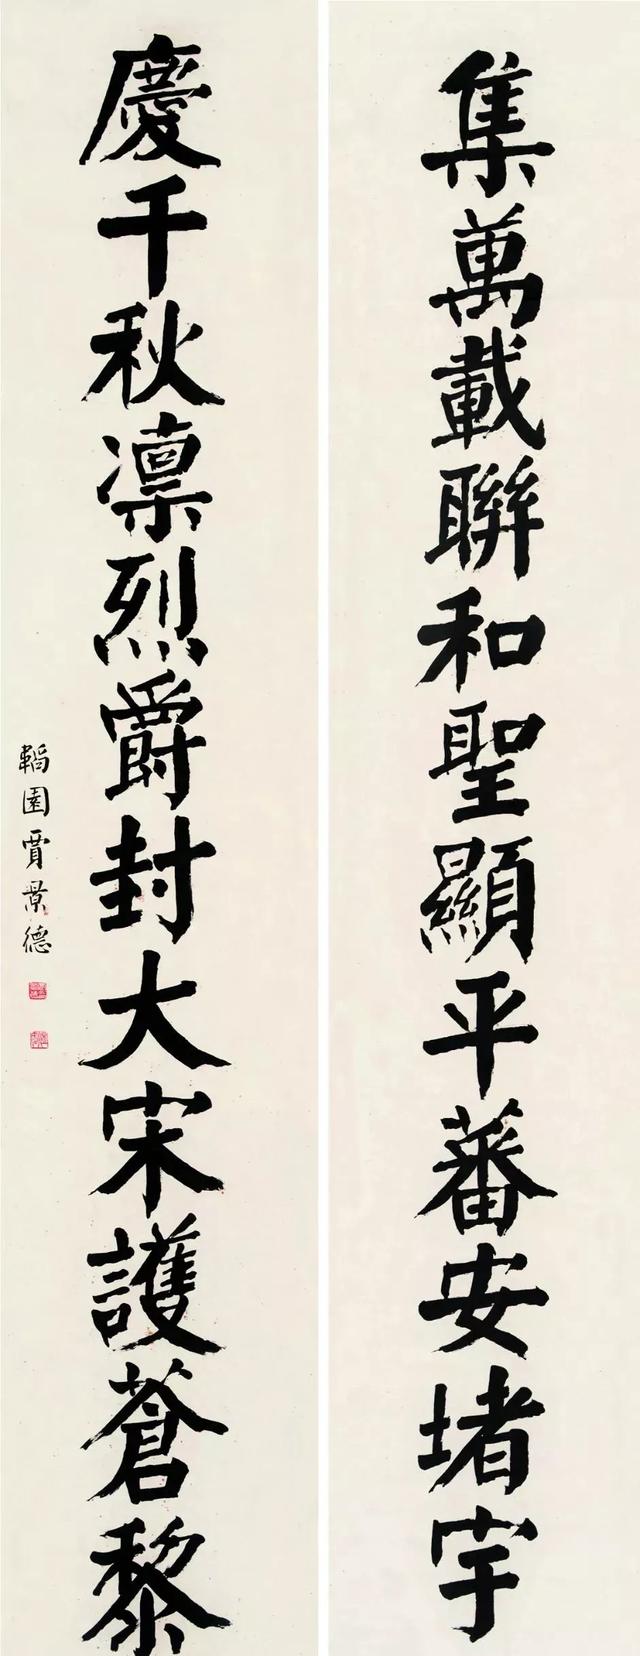 集萬載聯和聖顯平蕃安堵宇
慶千秋凛烈爵封大宋護蒼黎
韜園賈景德